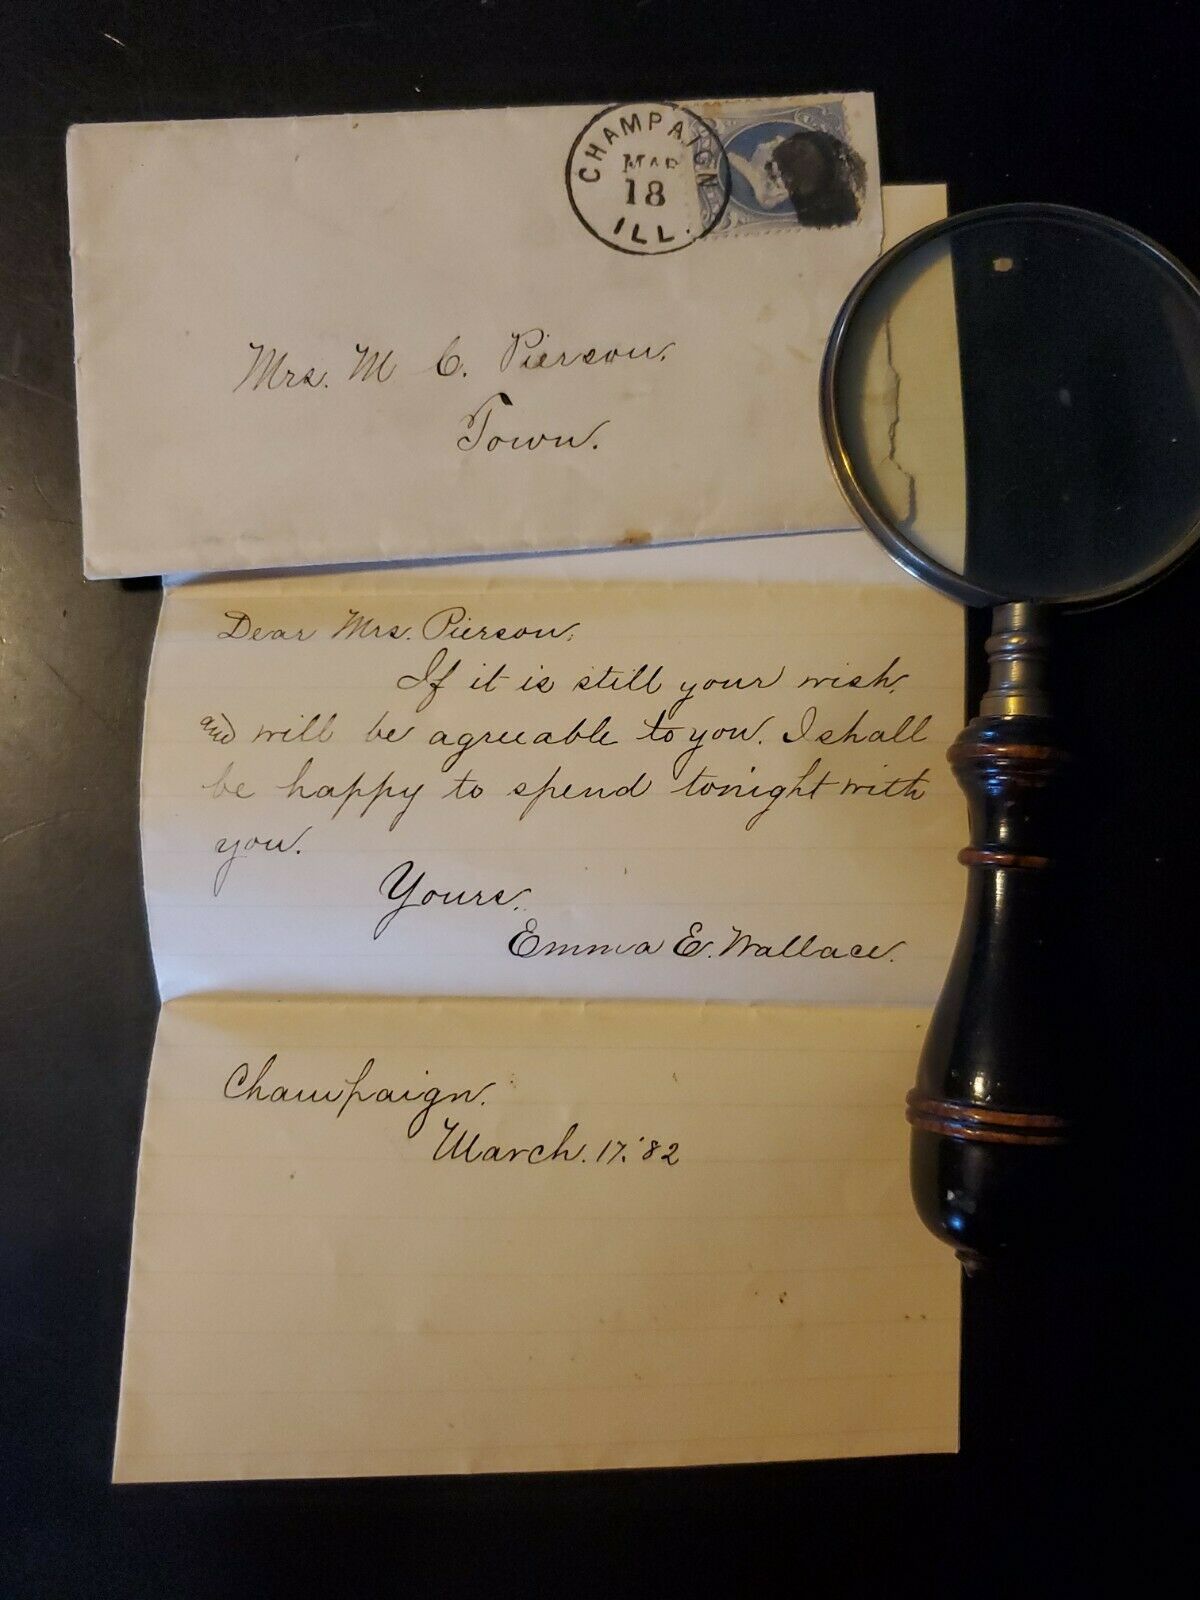 CHAMPAIGN
MAR
18
ILL.
Mrs. M C. Pierson.
Town.
Dear Mrs. Pierson,
If it is still your wish,
and will be agreeable to you. I shall
be happy to spend tonight with
you.
Yours,
Emma E. Wallace.
Champaign.
March. 17. '82